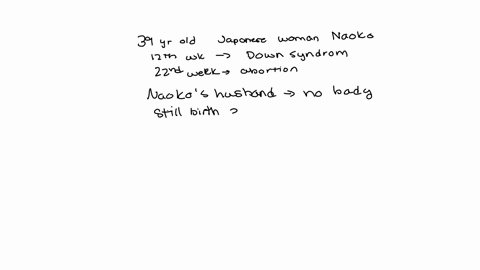 39 yr old Japanese woman Naoko
12th wk → Down syndrom
22nd week → abortion
Naoko's husband → no bady
still birth >